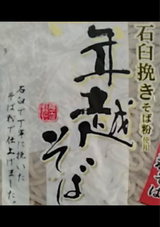 石臼挽きそば粉使用
年越そば
石臼で丁寧に挽いた
そば粉で仕上げました。
そば